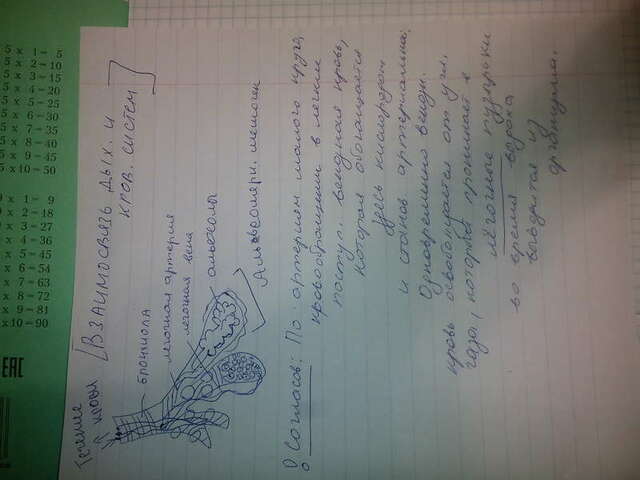 Течение
крови
[Взаимосвязь дых. и
кров. систем]
бронхиола
лёгочная артерия
лёгочная вена
альвеолы
Альвеолярн. мешочек
Согласов: По артериям малого круга
кровообращения в легкие
поступ. венозная кровь,
которая обогащается
здесь кислородом
и становт артериальной.
Одновременно венозн.
кровь освобождается от угл.
газа, который проникает в
лёгочные пузырьки
во время
выводится из
организма.
5 x 1 - 5
5 x 2 - 10
5 x 3 - 15
5 x 4 - 20
5 x 5 - 25
5 x 6 - 30
5 x 7 - 35
5 x 8 - 40
5 x 9 - 45
5 x 10 - 50
9 x 1 - 9
9 x 2 - 18
9 x 3 - 27
9 x 4 - 36
x 5 - 45
x 6 - 54
x 7 - 63
x 8 - 72
x 9 - 81
x 10 - 90
EAC